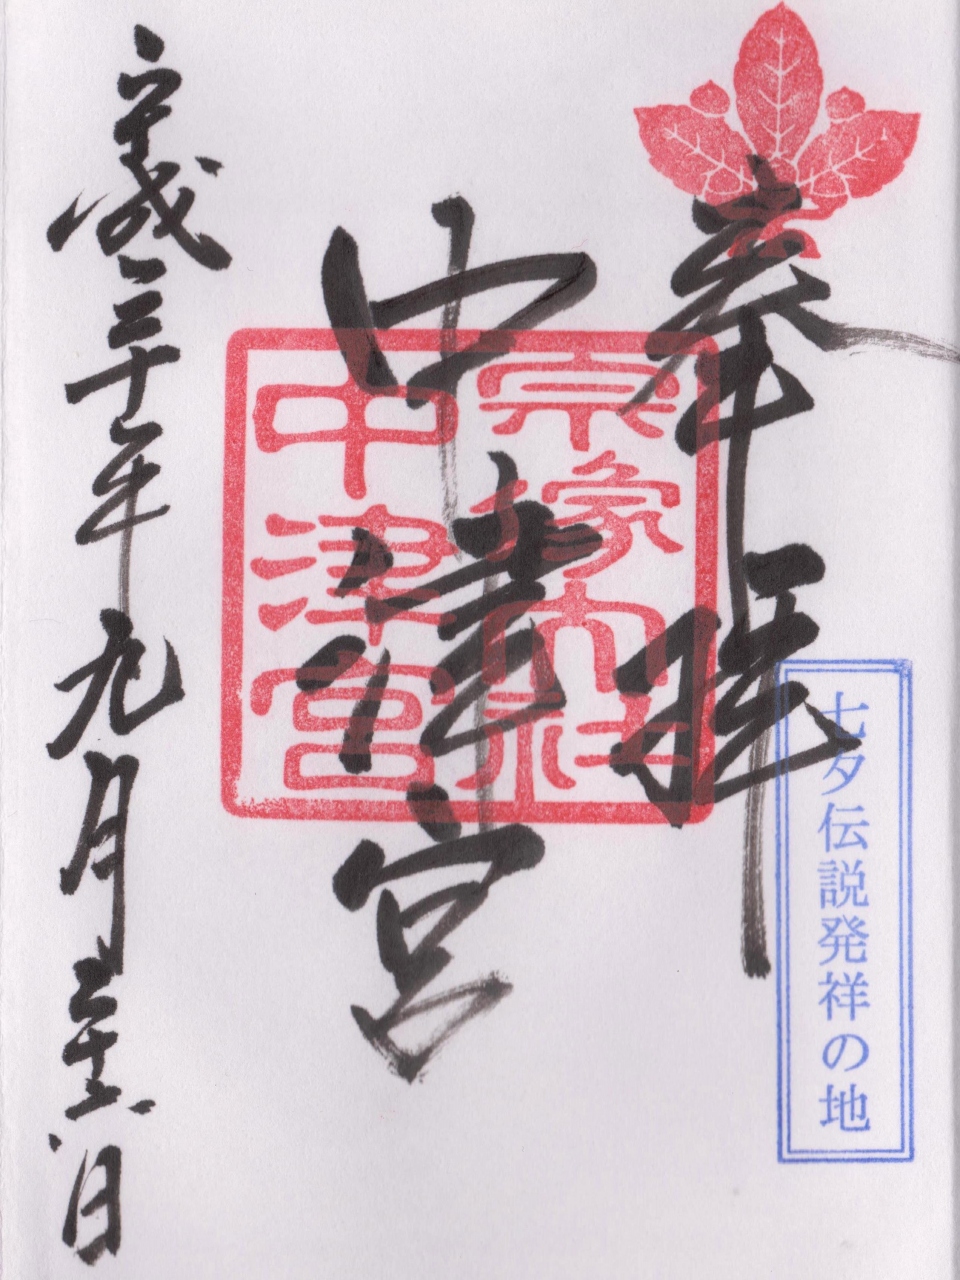 奉拝
七夕伝説発祥の地
宗像大社
中津宮
中津宮
平成三十年九月二十六日